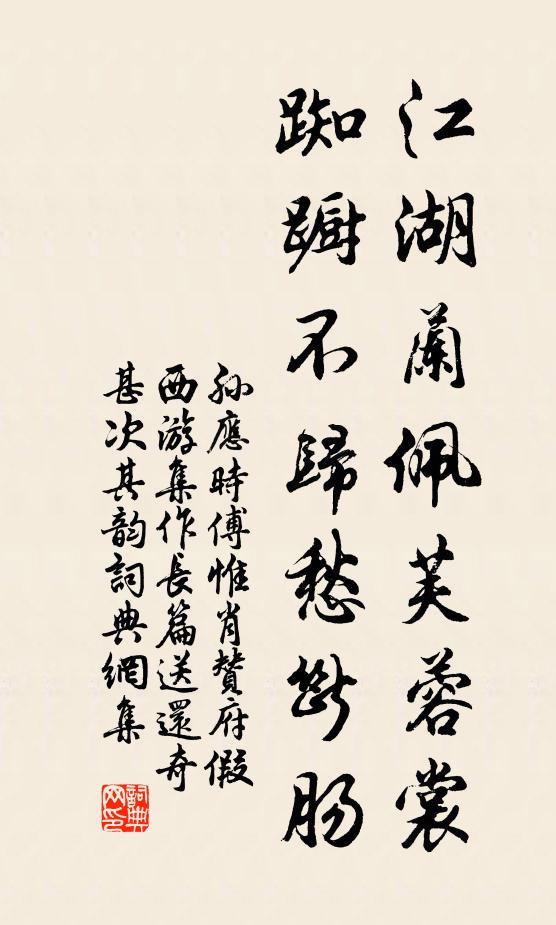 江湖蘭佩芙蓉裳
踟躕不歸愁斷腸
孫應時傅惟肖贊府假
西游集作長篇送還奇
甚次其韵詞典網集
詞典网印